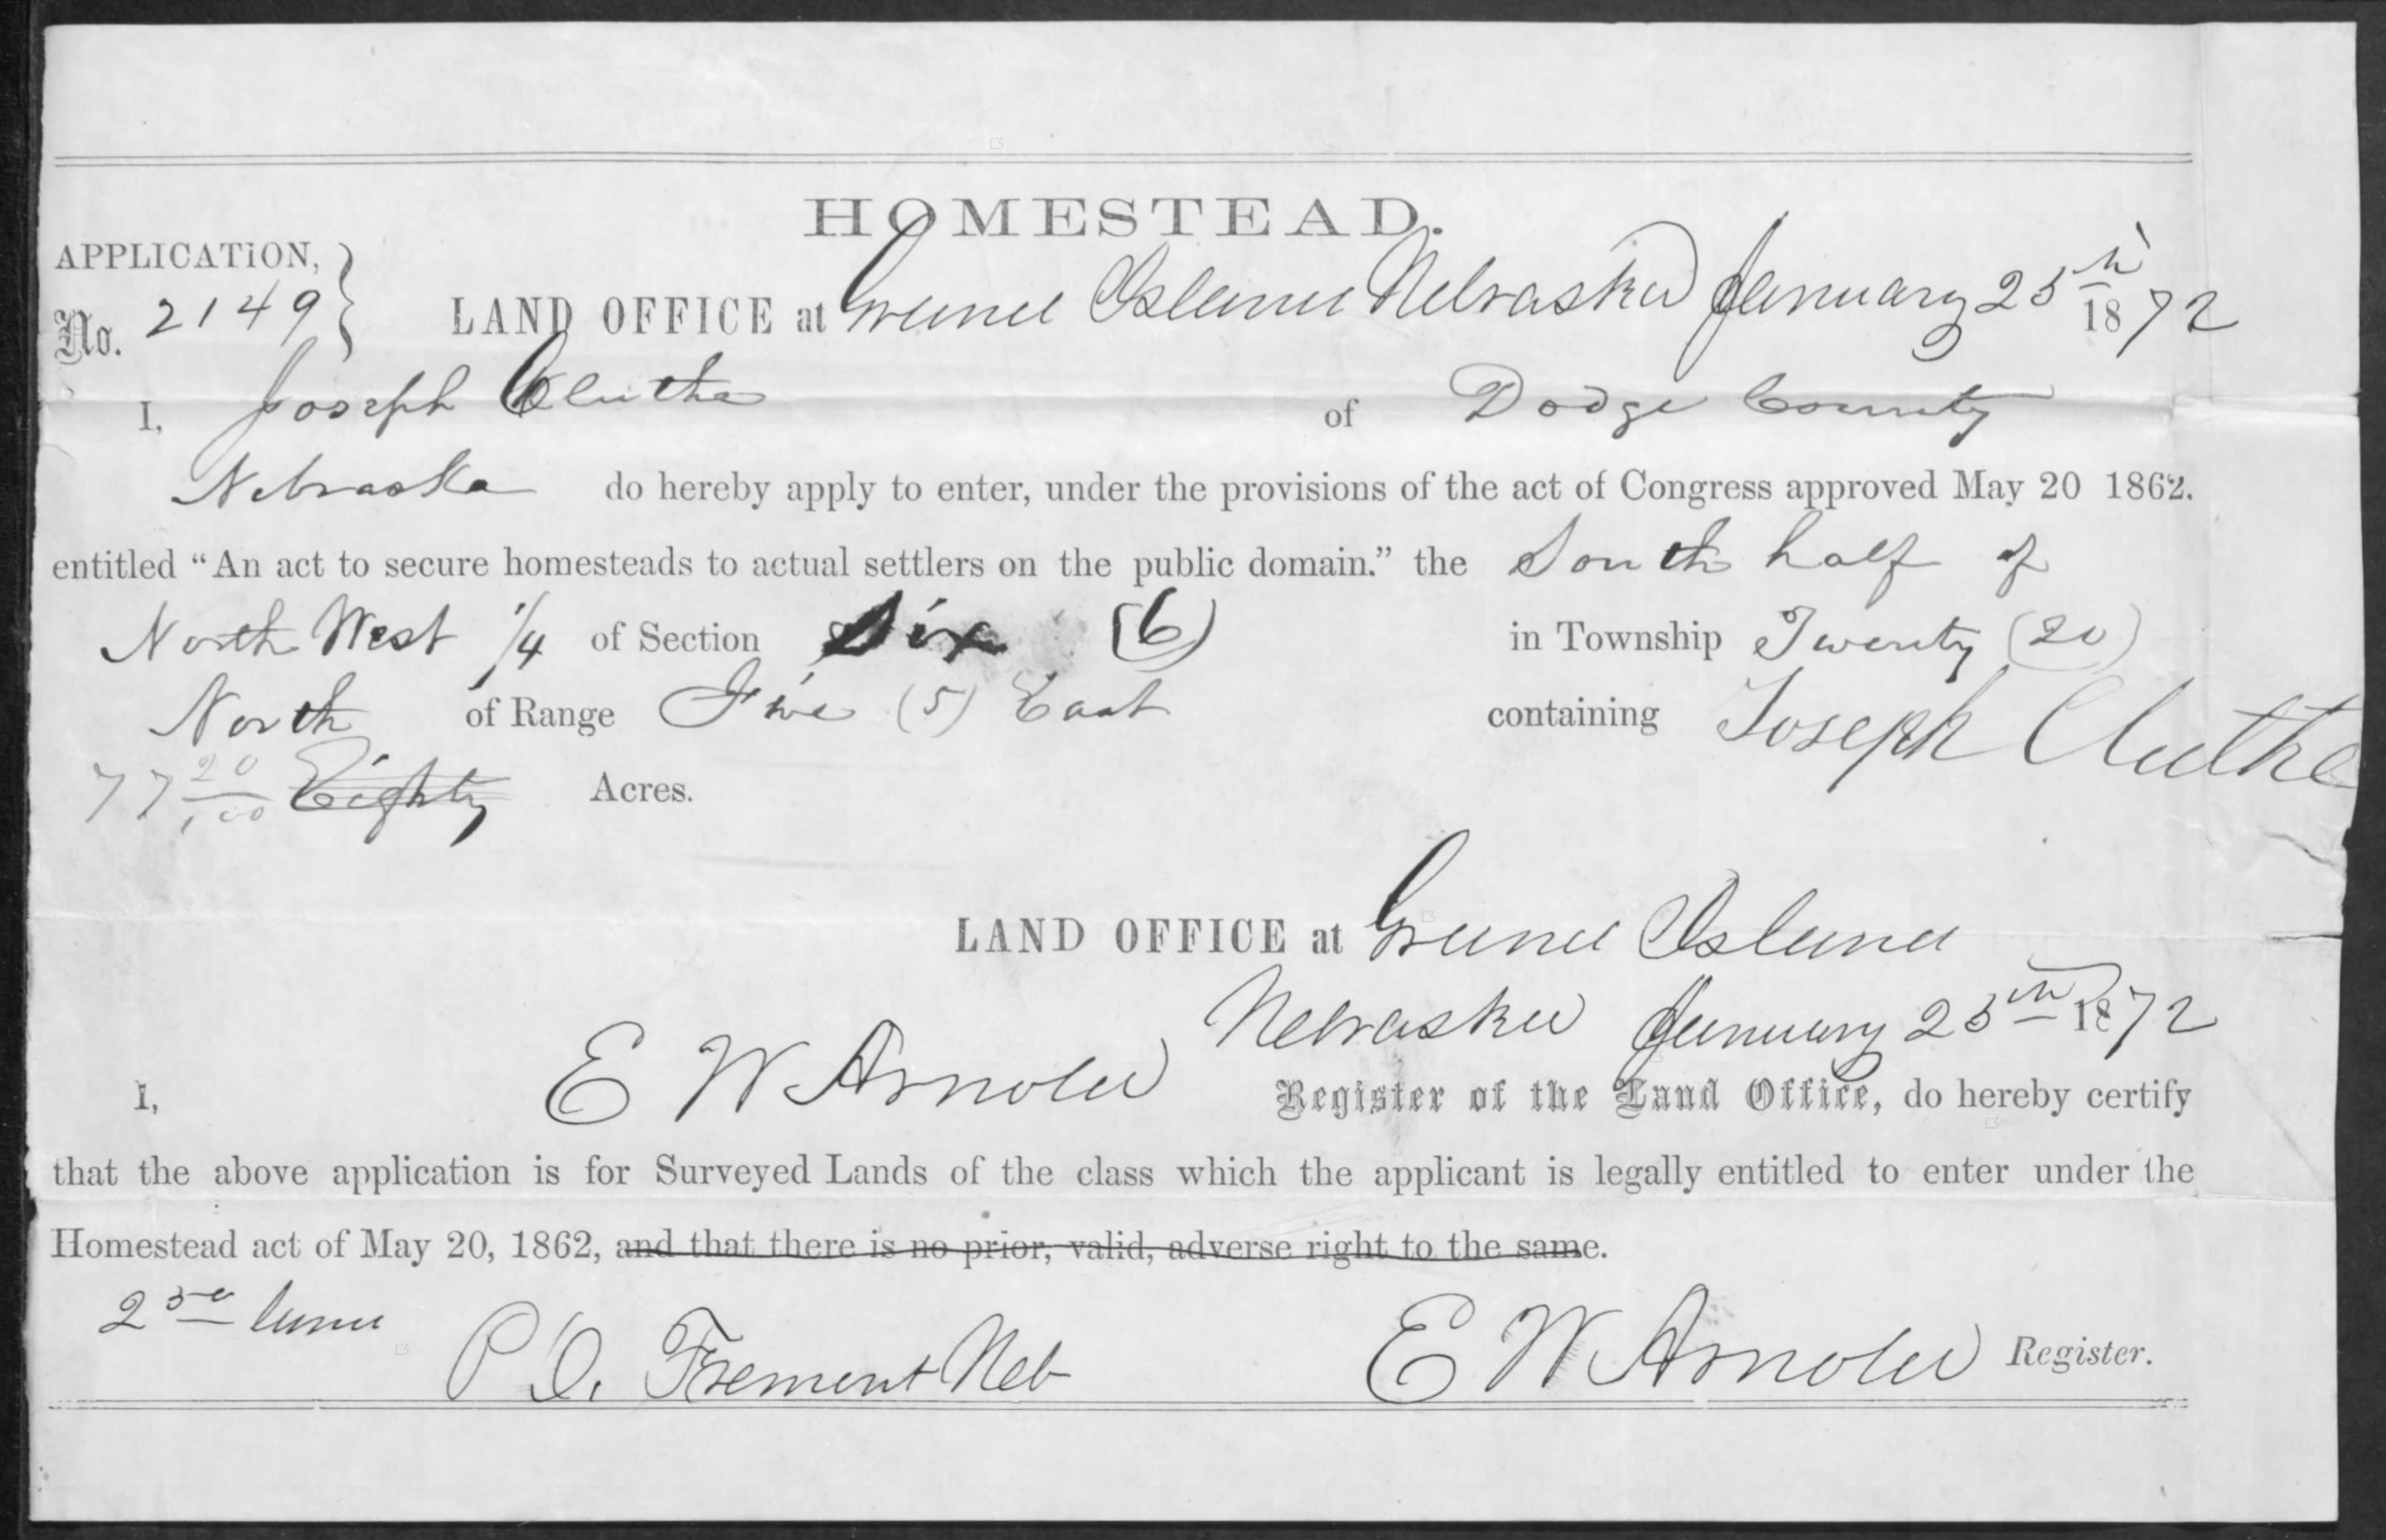 HOMESTEAD.
APPLICATION,
No. 2149 } LAND OFFICE at Grand Island Nebraska January 25th 1872
I, Joseph Cluthe of Dodge County
Nebraska do hereby apply to enter, under the provisions of the act of Congress approved May 20 1862.
entitled “An act to secure homesteads to actual settlers on the public domain.” the South half of
North West 1/4 of Section Six (6) in Township Twenty (20)
North of Range Five (5) East containing Joseph Cluthe
77 20/100 Eighty Acres.
LAND OFFICE at Grand Island
Nebraska January 25th 1872
I, E W Arnold Register of the Land Office, do hereby certify
that the above application is for Surveyed Lands of the class which the applicant is legally entitled to enter under the
Homestead act of May 20, 1862, and that there is no prior, valid, adverse right to the same.
P O. Fremont Neb E W Arnold Register.